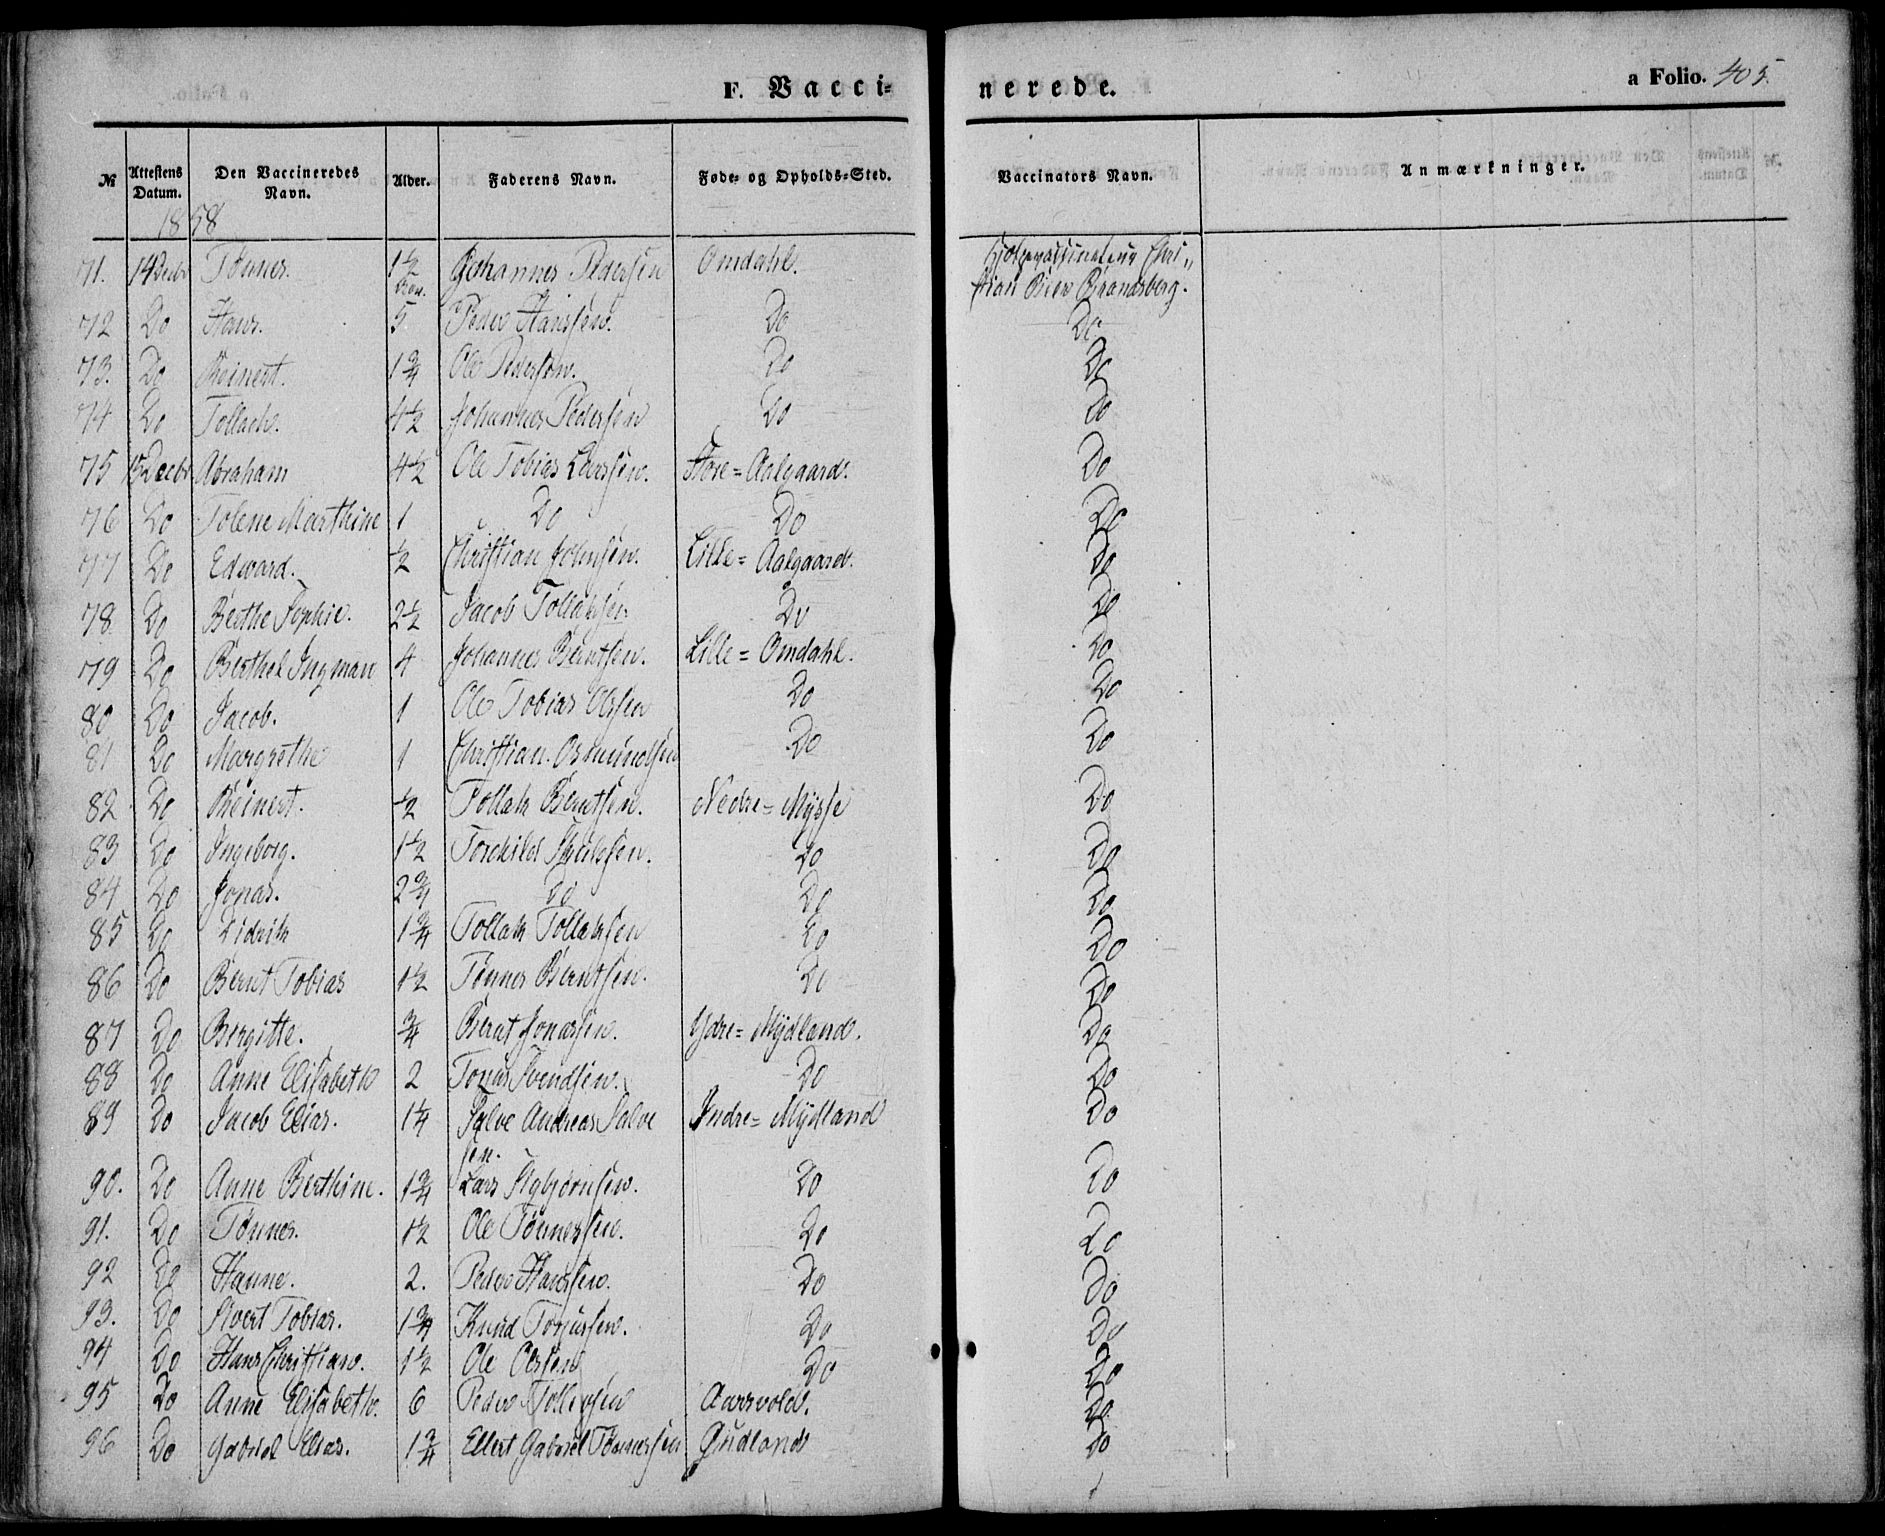 F. Vacci-
nerede.
a Folio. 405.
№ Attestens Datum. Den Vaccineredes Navn. Alder. Faderens Navn. Føde- og Opholds-Sted. Vaccinators Navn. Anmærkninger.
1858
71. 14 Decbr Tønnes. 1½ Johannes Pedersen Omdahl. Hjelpevaccinateur Chri„
stian Brandsberg.
72 Do Hans. 5 Peder Hanssen. Do Do
73. Do Reinert. 1¾ Ole Pedersen. Do Do
74 Do Tollach. 4½ Johannes Pedersen Do Do
75 15 Decbr Abraham 4½ Ole Tobias Larssen. Store=Aalgaard. Do
76 Do Tolene Marthine 1 Do Do Do
77 Do Edward. ½ Christian Johnsen. Lille=Aalgaard. Do
78 Do Berthe Sophie. 2½ Jacob Tollaksen Do Do
79 Do Berthel Ingman 4 Johannes Berntsen. Lille=Omdahl. Do
80 Do Jacob. 1 Ole Tobias Olssen Do Do
81 Do Margrethe 1 Christian Osmundsen Do Do
82 Do Reinert. ½ Tollak Berntsen. Nedre=Mysse Do
83 Do Ingeborg. 1½ Torkild Do Do
84 Do Jonas. 2¾ Do Do Do
85 Do Didrik 1¾ Tollak Tollaksen Do Do
86 Do Bernt Tobias 1½ Tønnes Berntsen. Do Do
87 Do Bergitte. ¾ Bernt Jonassen. Ydre=Mydland. Do
88 Do Anne Elisabeth 2 Tonas Svendsen. Do Do
89 Do Jacob Elias. 1¼ Salve Andreas Salve Indre=Mydland Do
sen.
90. Do Anne Berthine. 1¾ Lars Asbjørnsen. Do Do
91. Do Tønnes. 1½ Ole Tønnessen. Do Do
92 Do Hanne. 2. Peder Hanssen. Do Do
93. Do Sivert Tobias. 1¾ Knud Torjussen. Do Do
94 Do Hans Christian. 1½ Ole Olssen Do Do
95 Do Anne Elisabeth. 6 Peder Tollevsen Aarsvold. Do
96 Do Gabriel Elias. 1¾ Ellert Gabriel Tønnessen Gudland Do